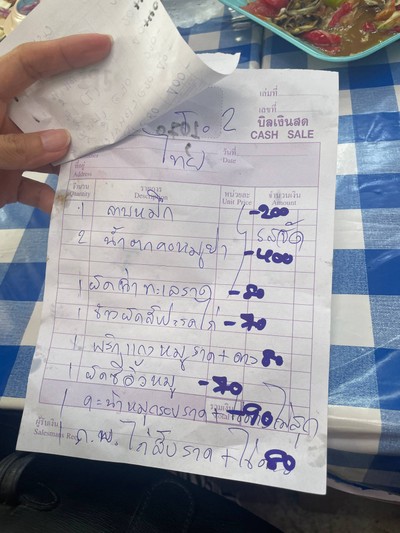 เล่มที่
เลขที่
บิลเงินสด
CASH SALE
2
วันที่
Date
ที่อยู่
Address
จำนวน รายการ หน่วยละ จำนวนเงิน
Quantity Description Unit Price Amount
1 ลาบหมึก -200
รสจัด
2 น้ำตกคอหมูย่าง -400
1 ผัดฉ่าทะเลราด -80
1 ข้าวผัดสับปะรดไก่ -70
1 พริกแกงหมูราด+ดาว 80
1 ผัดซีอิ๊วหมู -70
รวมเงิน
Total
1 คะน้าหมูกรอบราด+ -90 ไม่สุก
ผู้รับเงิน
ก.พ. ไก่สับราด+ไข่ 80